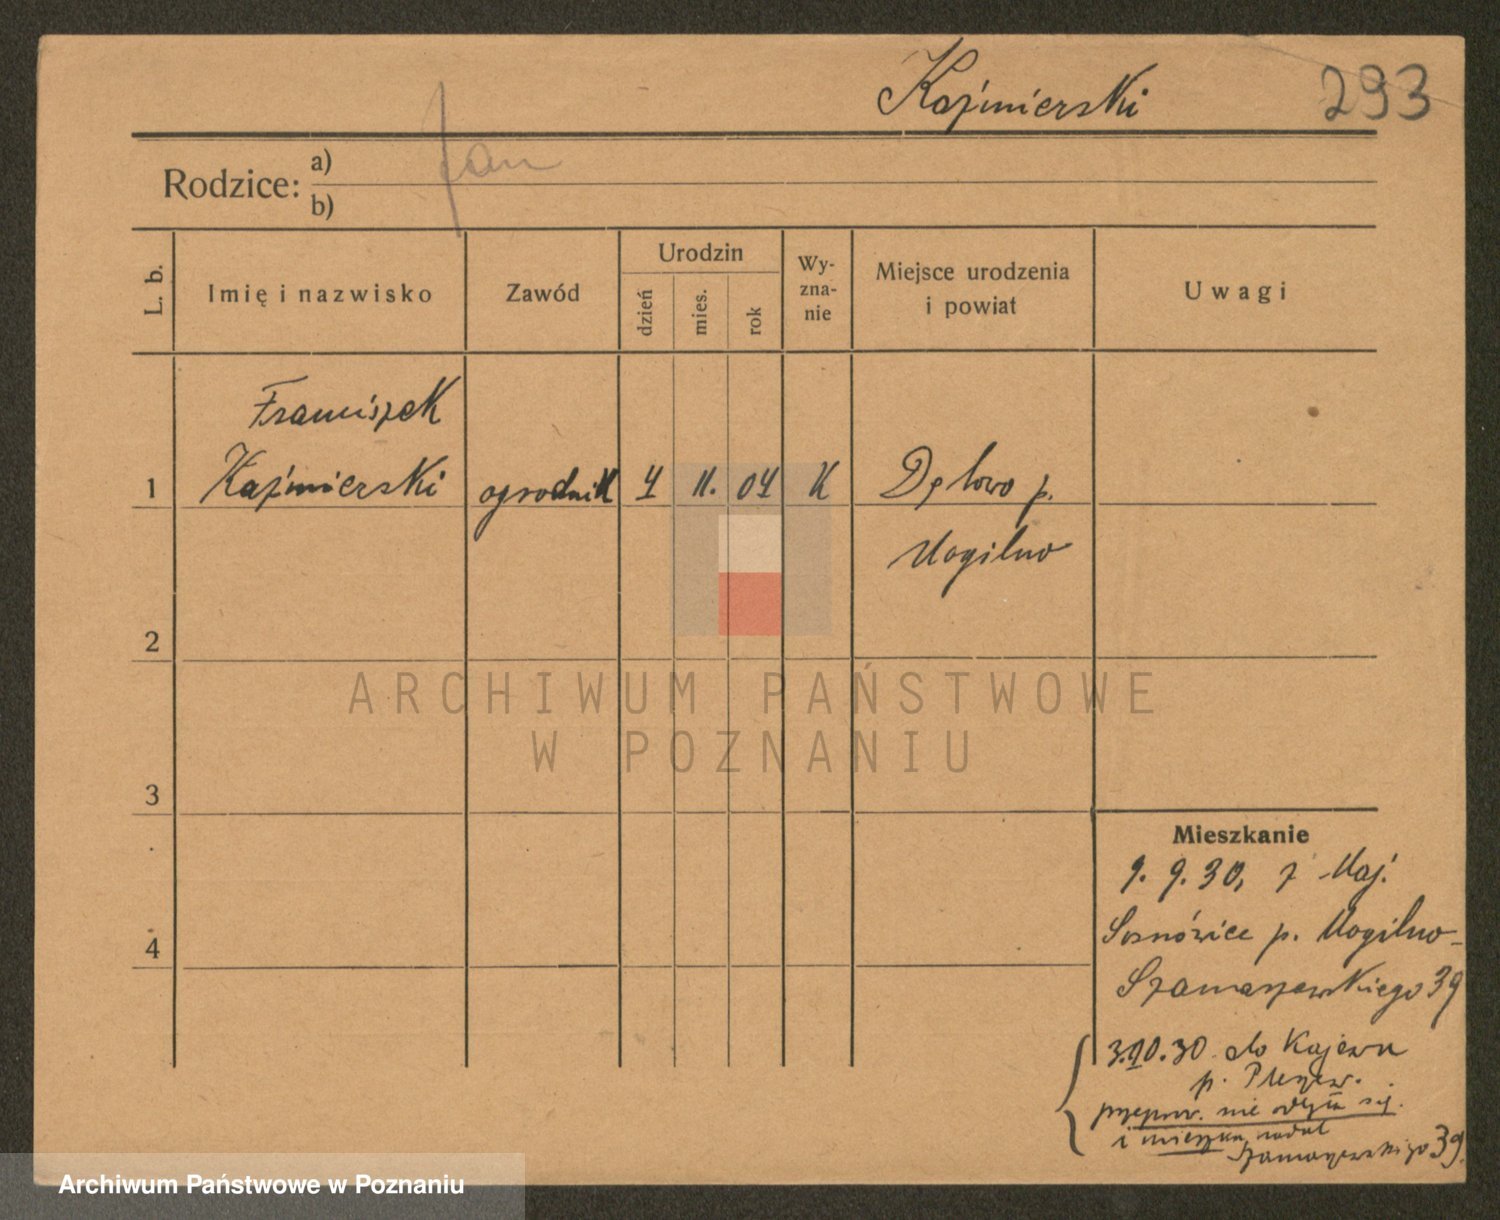 Kaźmierski
293
Rodzice: a) Jan
b)
L. b.
Imię i nazwisko
Zawód
Urodzin
dzień
mies.
rok
Wy-
zna-
nie
Miejsce urodzenia
i powiat
Uwagi
Franciszek
1 Kaźmierski ogrodnik 4 11. 04 K p.
Mogilno
2
ARCHIWUM PAŃSTWOWE
W POZNANIU
3
Mieszkanie
9. 9. 30, z Maj.
p. Mogilno-
Szamarzewskiego 39
4
3.10.30 do Kajewa
p. Pleszew.
nie odbyła się.
i mieszka nadal
Szamarzewskiego 39.
Archiwum Państwowe w Poznaniu